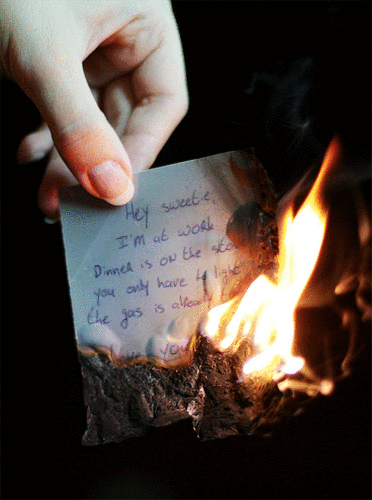 Hey sweetie,
I'M at work
Dinner is on the sto
you only have to light
the gas is already
you